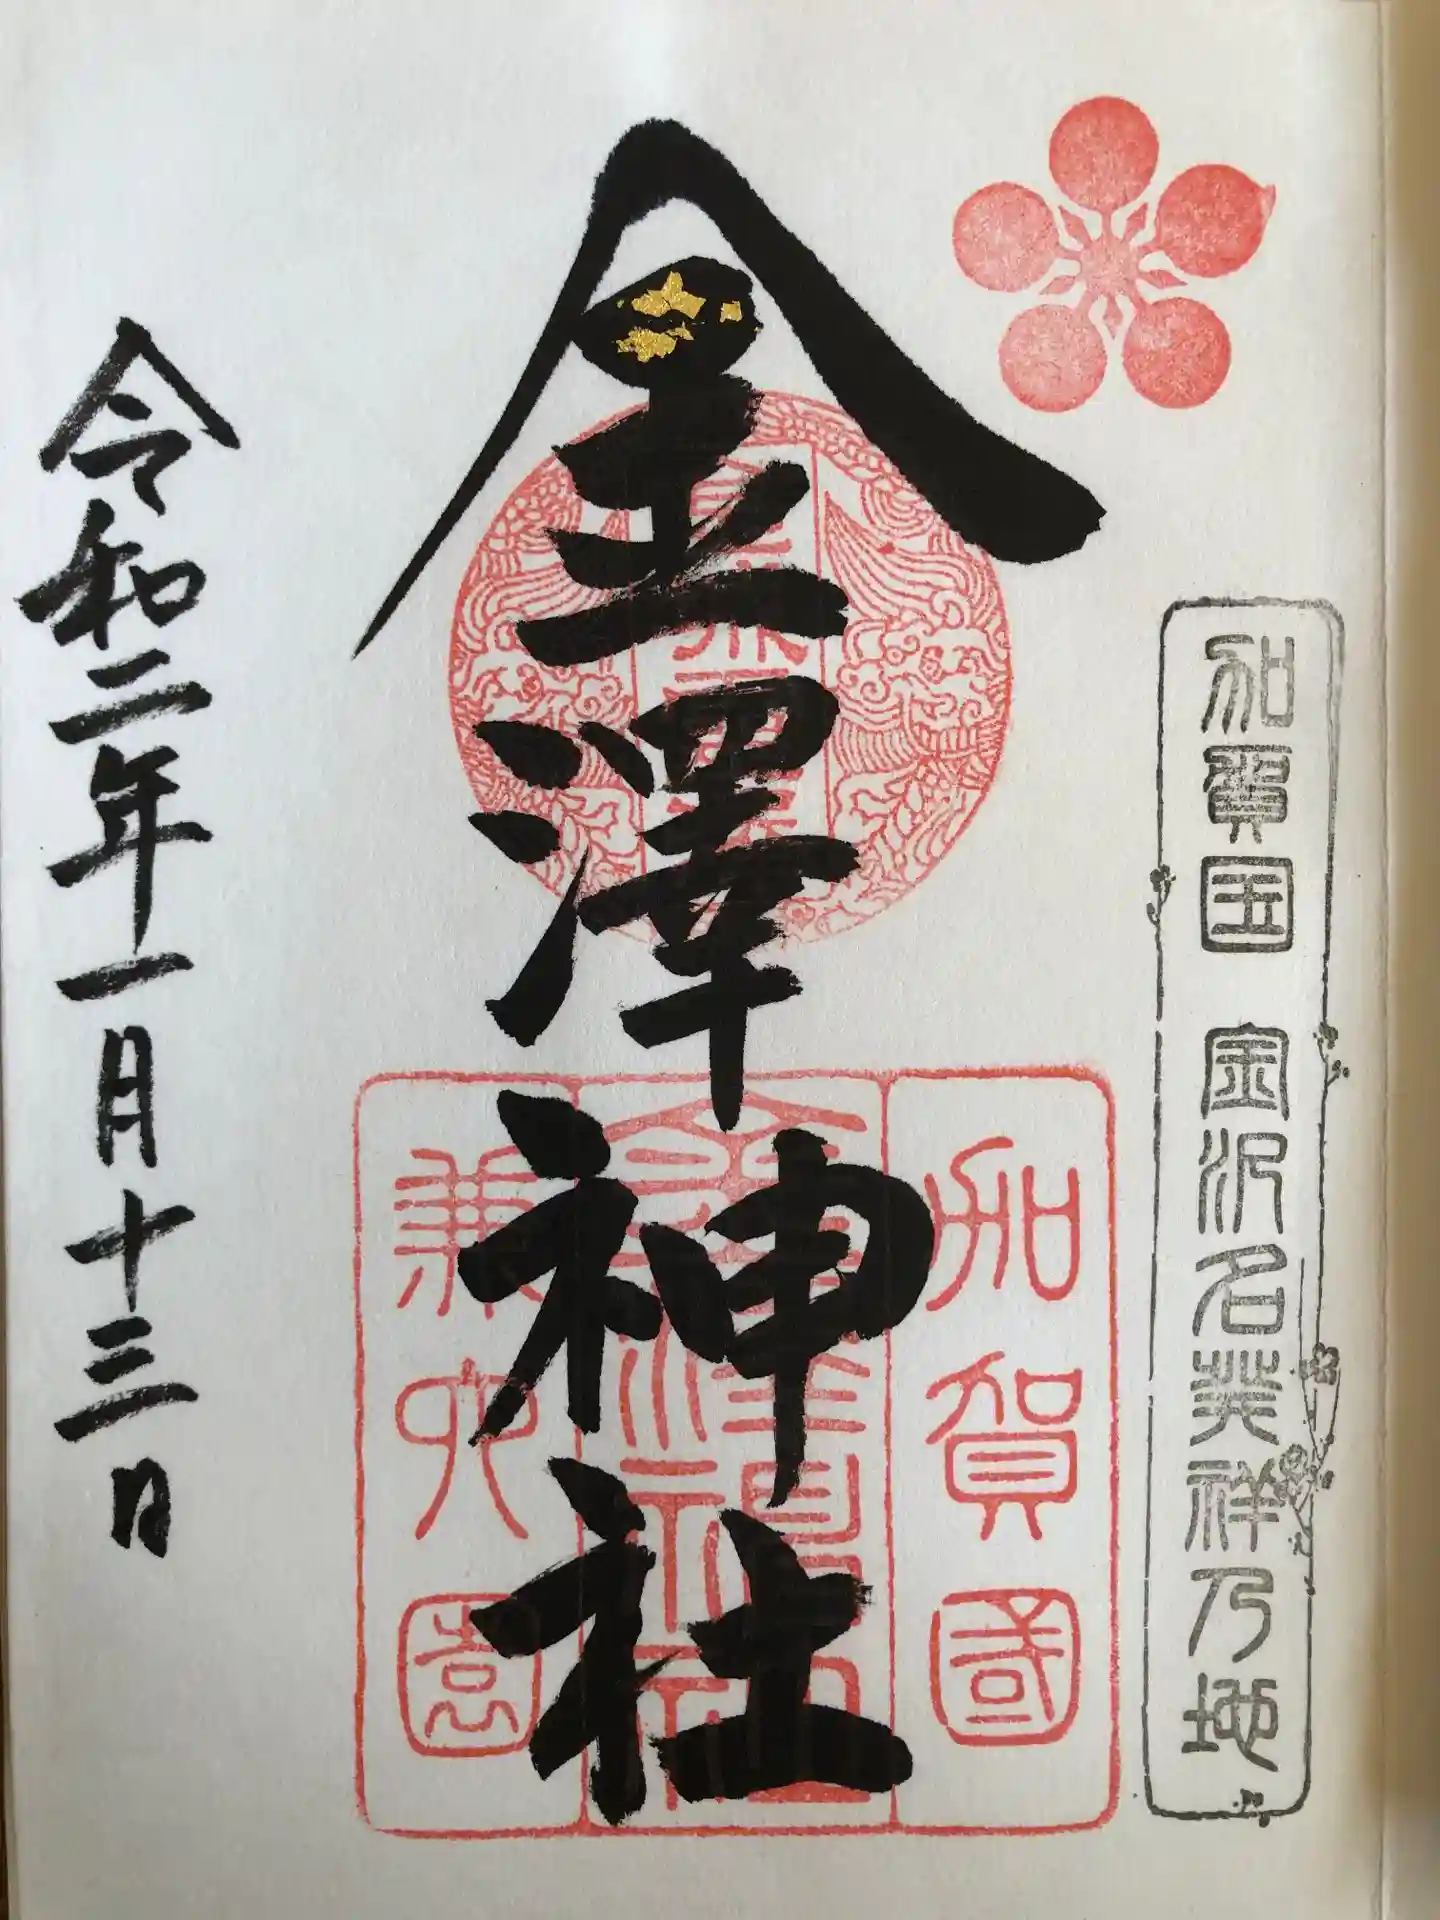 加賀国 金沢名発祥乃地
加賀國
金澤神社
兼六園
令和二年一月十三日